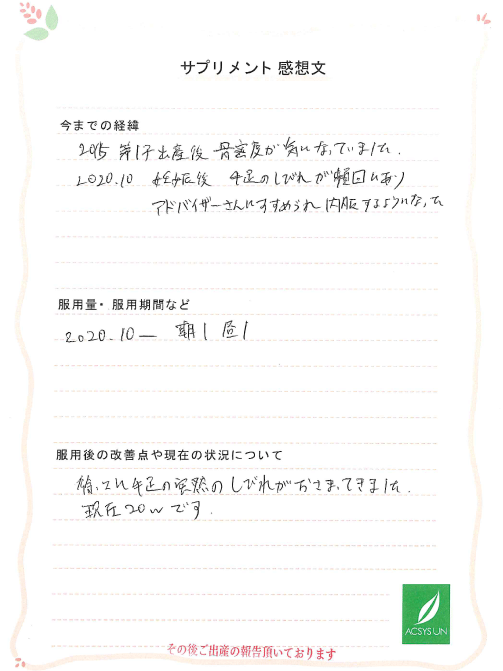 サプリメント 感想文
今までの経緯
2015 第1子出産後 骨密度が気になっていました.
2020.10 妊娠後 手足のしびれが頻回にあり
アドバイザーさんにすすめられ 内服するようになった
服用量・服用期間など
2020.10 ― 朝1 昼1
服用後の改善点や現在の状況について
手足の突然のしびれがおさまってきました.
現在20wです.
ACSYSUN
その後ご出産の報告頂いております